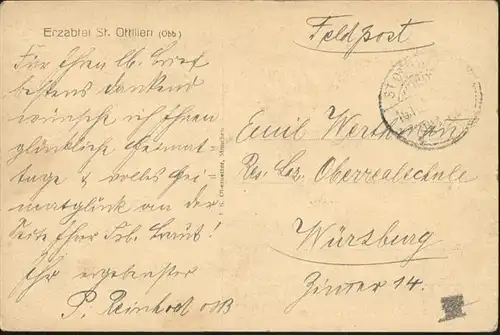 Erzabtei St. Ottilien (Obb.)
Für Ihren lb. Brief
bestens dankend
wünsche ich Ihnen
glückliche Heimat-
tage & volles Hei-
matglück an der
Seite Ihrer lb. Braut!
Ihr ergebenster
P. Reinhold OSB
Feldpost
Emil
Res. Laz. Oberrealschule
Würzburg
Zimmer 14.